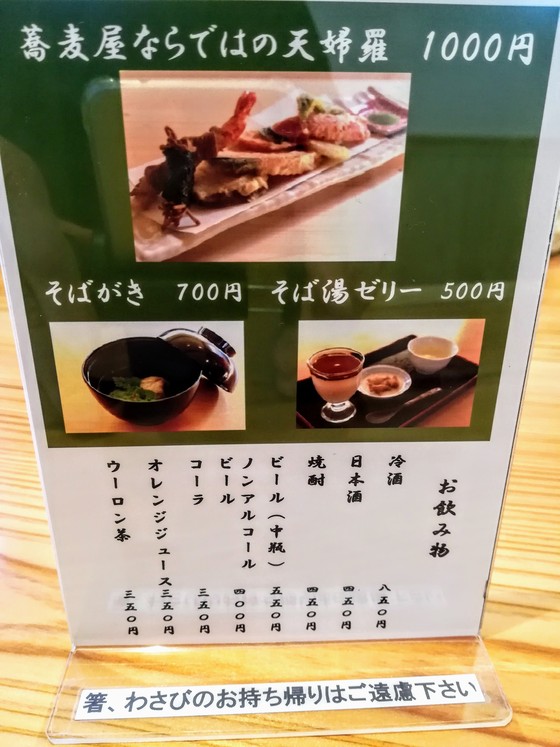 蕎麦屋ならではの天婦羅 1000円
そばがき 700円
そば湯ゼリー 500円
お飲み物
冷酒 八五〇円
日本酒 四五〇円
焼酎 四五〇円
ビール(中瓶) 五五〇円
ノンアルコール
ビール 四〇〇円
コーラ 三五〇円
オレンジジュース 三五〇円
ウーロン茶 三五〇円
箸、わさびのお持ち帰りはご遠慮下さい